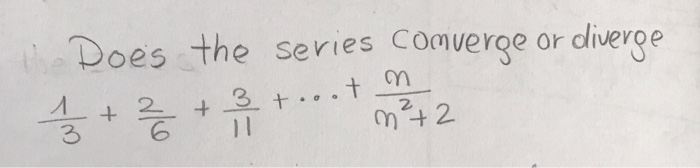 Does the series converge or diverge
1/3 + 2/6 + 3/11 + ... + n/(n²+2)